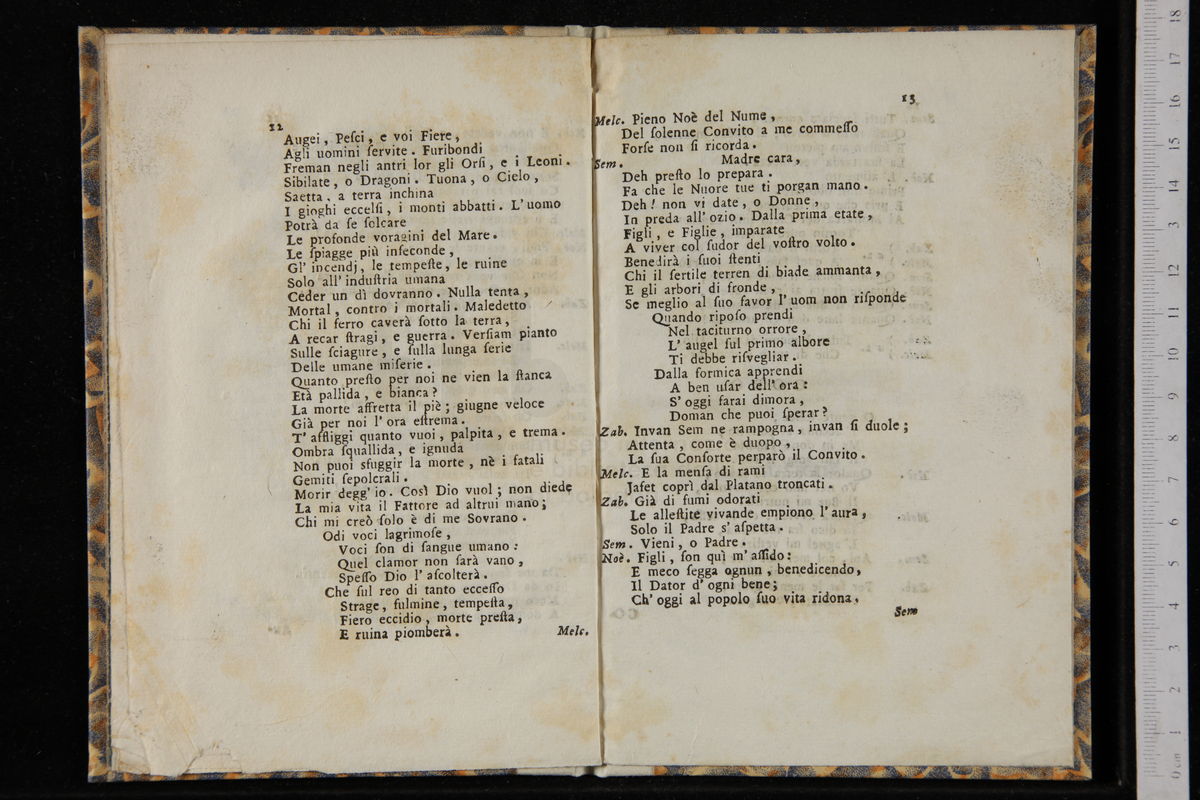 12
Augei, Peſci, e voi Fiere,
Agli uomini ſervite. Furibondi
Freman negli antri lor gli Orſi, e i Leoni.
Sibilate, o Dragoni. Tuona, o Cielo,
Saetta, a terra inchina
I gioghi eccelſi, i monti abbatti. L' uomo
Potrà da ſe ſolcare
Le profonde voragini del Mare.
Le ſpiagge più infeconde,
Gl' incendj, le tempeſte, le ruine
Solo all' induſtria umana
Ceder un dì dovranno. Nulla tenta,
Mortal, contro i mortali. Maledetto
Chi il ferro caverà ſotto la terra,
A recar ſtragi, e guerra. Verſiam pianto
Sulle ſciagure, e ſulla lunga ſerie
Delle umane miſerie.
Quanto preſto per noi ne vien la ſtanca
Età pallida, e bianca?
La morte affretta il piè; giugne veloce
Già per noi l' ora eſtrema.
T' affliggi quanto vuoi, palpita, e trema.
Ombra ſquallida, e ignuda
Non puoi sfuggir la morte, nè i fatali
Gemiti ſepolcrali.
Morir degg' io. Così Dio vuol; non diede
La mia vita il Fattore ad altrui mano;
Chi mi creò ſolo è di me Sovrano.
Odi voci lagrimoſe,
Voci ſon di ſangue umano:
Quel clamor non ſarà vano,
Speſſo Dio l' aſcolterà.
Che ſul reo di tanto ecceſſo
Strage, fulmine, tempeſta,
Fiero eccidio, morte preſta,
E ruina piomberà.
Melc.
13
Melc. Pieno Noè del Nume,
Del ſolenne Convito a me commeſſo
Forſe non ſi ricorda.
Sem. Madre cara,
Deh preſto lo prepara.
Fa che le Nuore tue ti porgan mano.
Deh! non vi date, o Donne,
In preda all' ozio. Dalla prima etate,
Figli, e Figlie, imparate
A viver col ſudor del voſtro volto.
Benedirà i ſuoi ſtenti
Chi il fertile terren di biade ammanta,
E gli arbori di fronde,
Se meglio al ſuo favor l' uom non riſponde
Quando ripoſo prendi
Nel taciturno orrore,
L' augel ſul primo albore
Ti debbe riſvegliar.
Dalla formica apprendi
A ben uſar dell' ora:
S' oggi farai dimora,
Doman che puoi ſperar?
Zab. Invan Sem ne rampogna, invan ſi duole;
Attenta, come è duopo,
La ſua Conſorte perparò il Convito.
Melc. E la menſa di rami
Jafet coprì dal Platano troncati.
Zab. Già di fumi odorati
Le alleſtite vivande empiono l' aura,
Solo il Padre s' aſpetta.
Sem. Vieni, o Padre.
Noè. Figli, ſon quì m' aſſido:
E meco ſegga ognun, benedicendo,
Il Dator d' ogni bene;
Ch' oggi al popolo ſuo vita ridona.
Sem